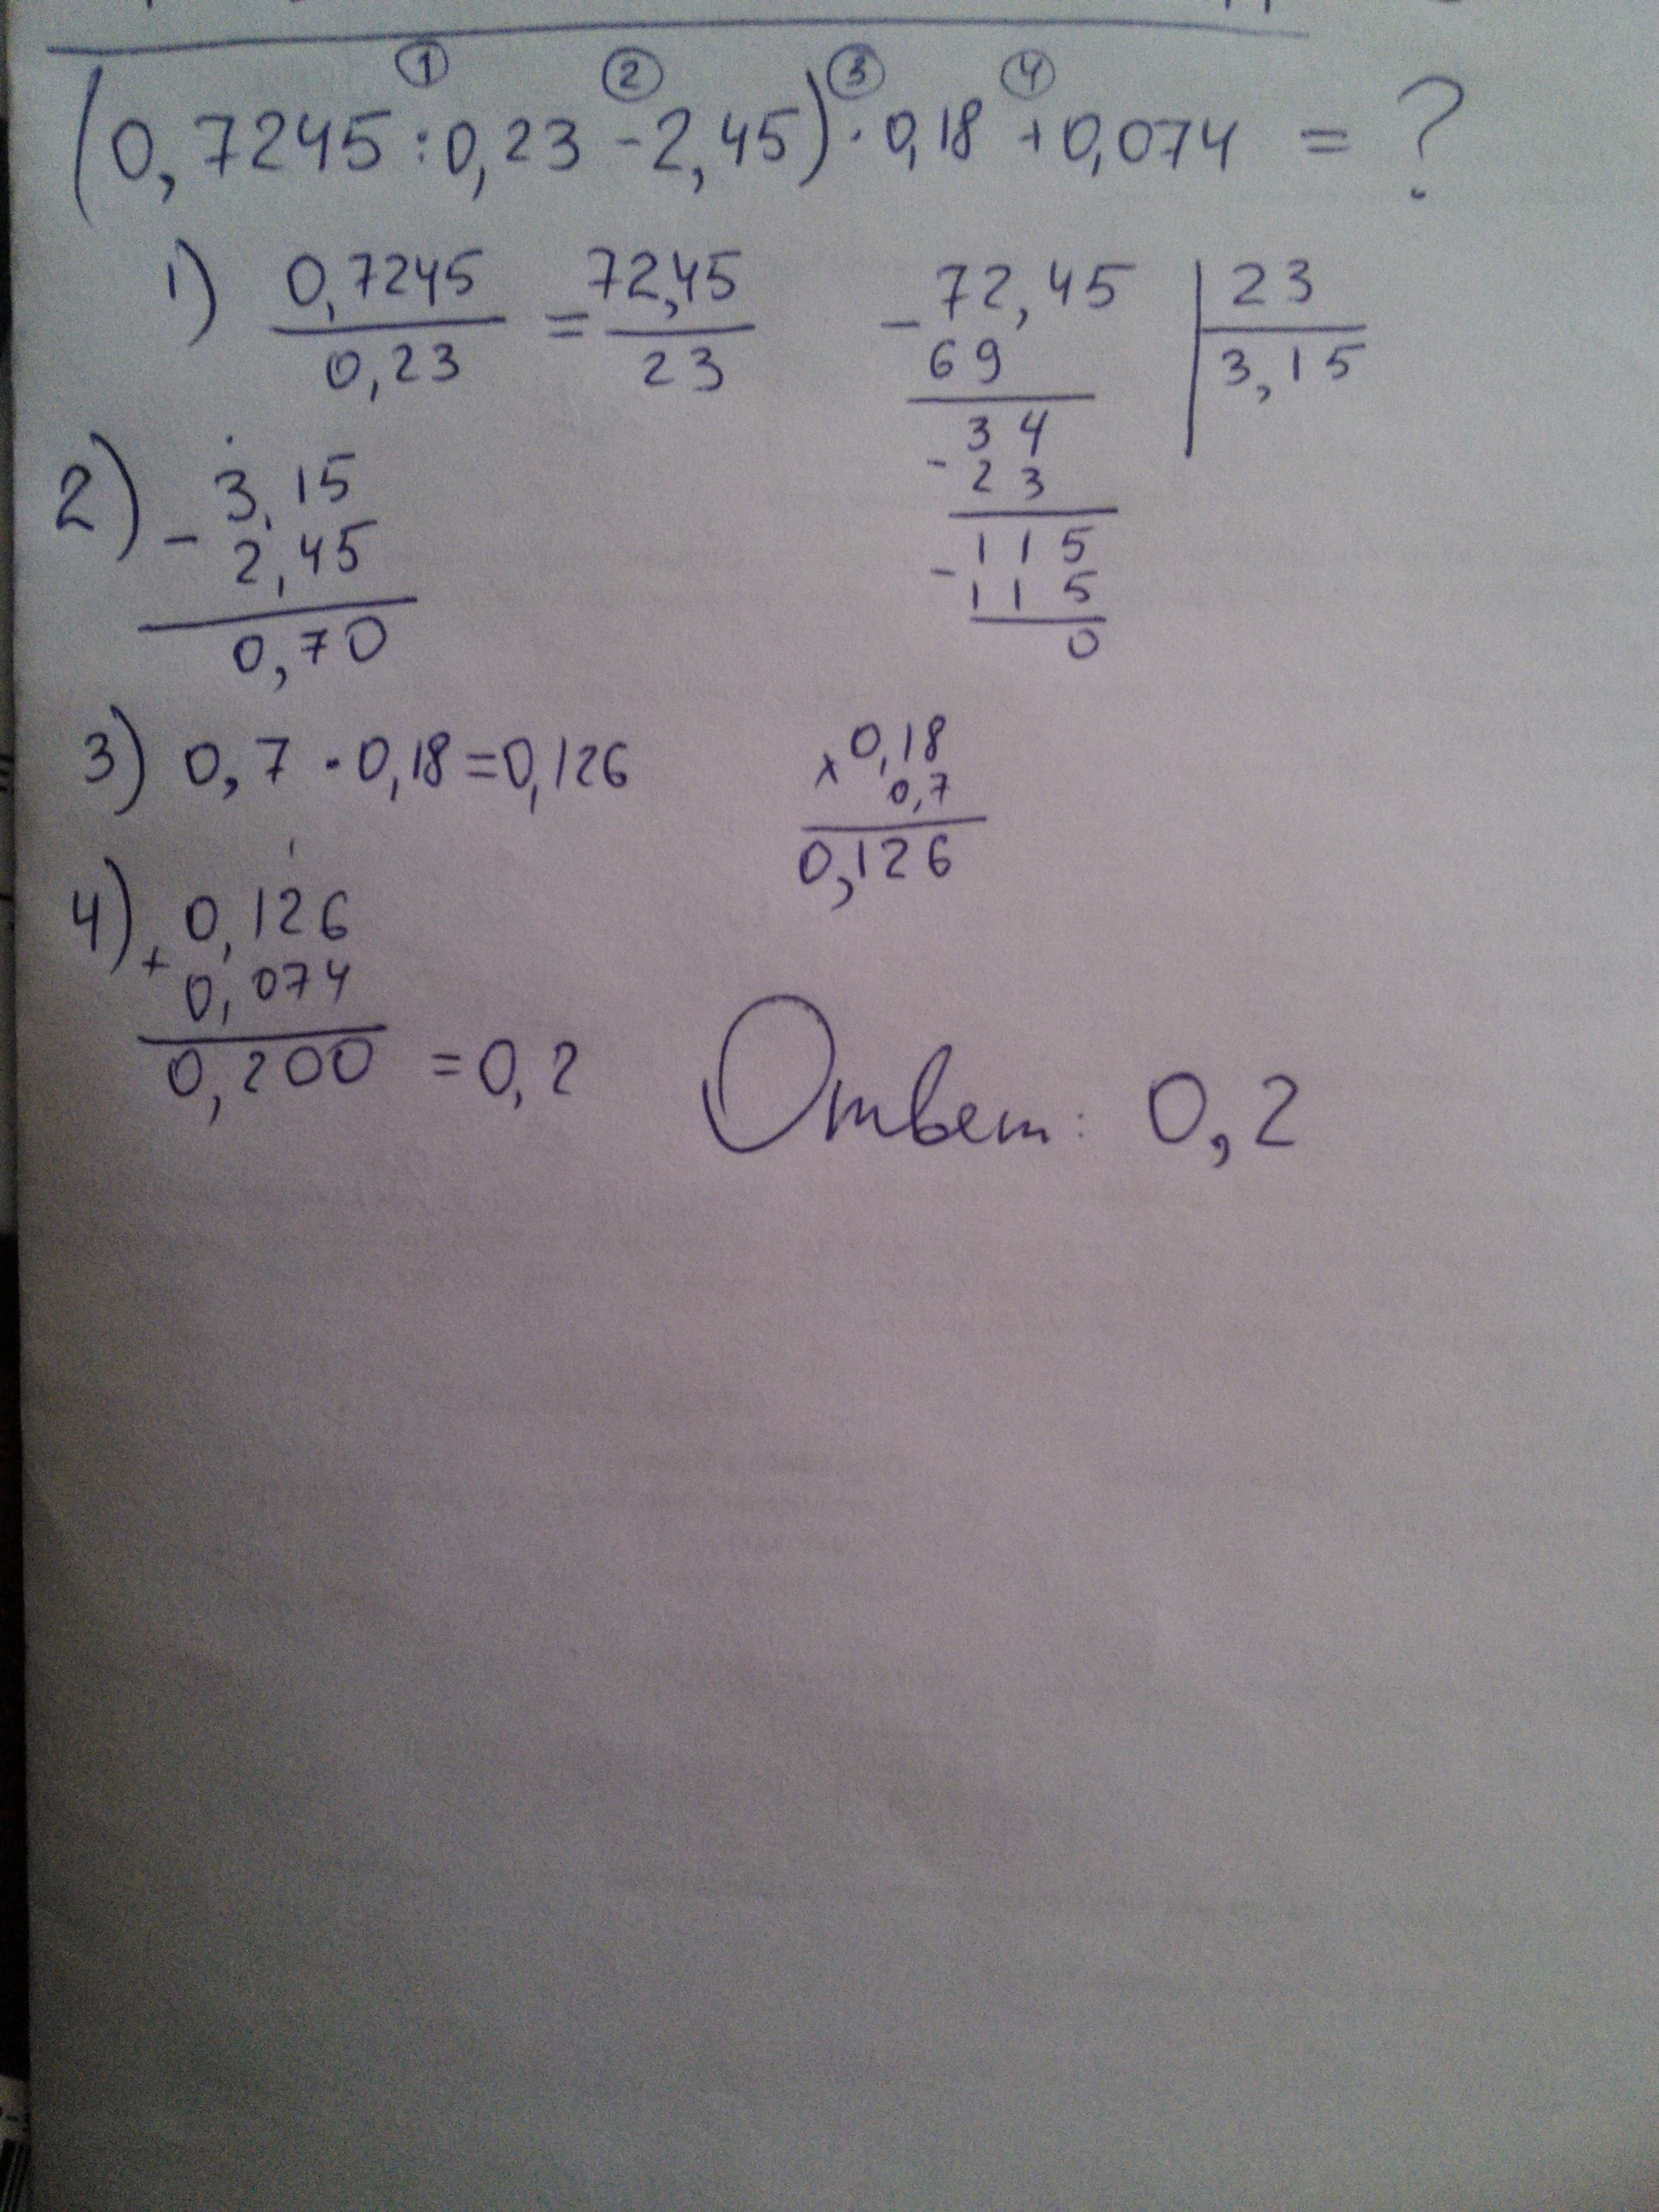 ① ② ③ ④
(0,7245:0,23-2,45)·0,18+0,074 = ?
1) 0,7245 = 72,45
0,23 23
-72,45 23
69 3,15
34
-23
115
-115
0
2) -3,15
2,45
0,70
3) 0,7·0,18=0,126
x0,18
0,7
0,126
1
4) +0,126
0,074
0,200 =0,2
Ответ: 0,2